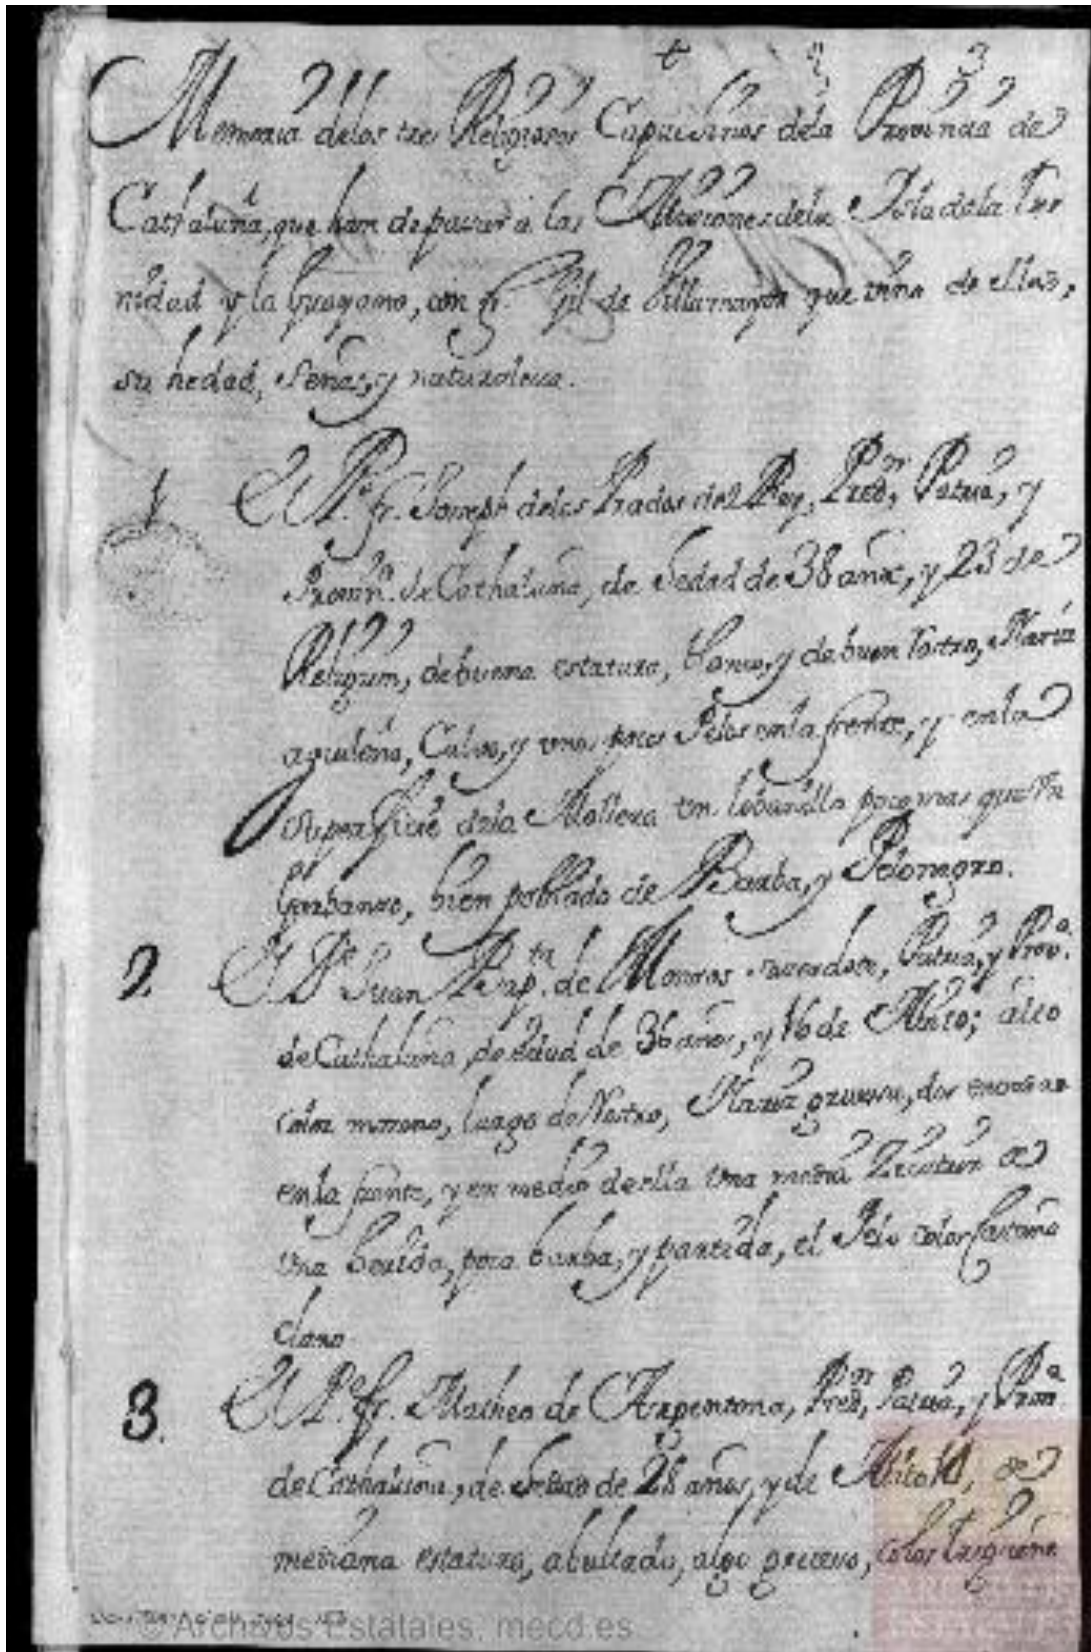 Memoria delos tres Religiosos Capuchinos dela Provincia de
Cathaluña, que han de passar a las Missiones dela Isla dela Tri
nidad y la Guayana, con fr. Gil de Villamayor que vino de ellas,
su hedad, señas, y naturaleza.
1 El Pe. fr. Joseph delos Prados del Rey, Predor, Patria, y
Provina. de Cathaluña, de hedad de 38 años, y 23 de
Religion, de buena estatura, blanco, y de buen rostro, Nariz
aguileña, Calvo, y unos pocos Pelos en la frente, y en la
superficie dela Mollera un lobanillo poco mas que un
garbanzo, bien poblado de Barba, y Pelo negro.
2. El Pe. Juan Bapta. de Sacerdote, Patria, y Prova.
de Cathaluña, de edad de 36 años, y 16 de Abito; alto
color moreno, largo de Rostro, Nariz gruessa, dos
en la frente, y en medio de ella una media de
una herida, poca barba, y partida, el Pelo color Castaño
claro.
3. El Pe. fr. Matheo de Arpentona, Predor, Patria, y Prova.
de Cathaluña, de hedad de 28 años, y de Abito 11, de
mediana estatura, abultado, algo grueso, color trigueño
© Archivos Estatales, mecd.es